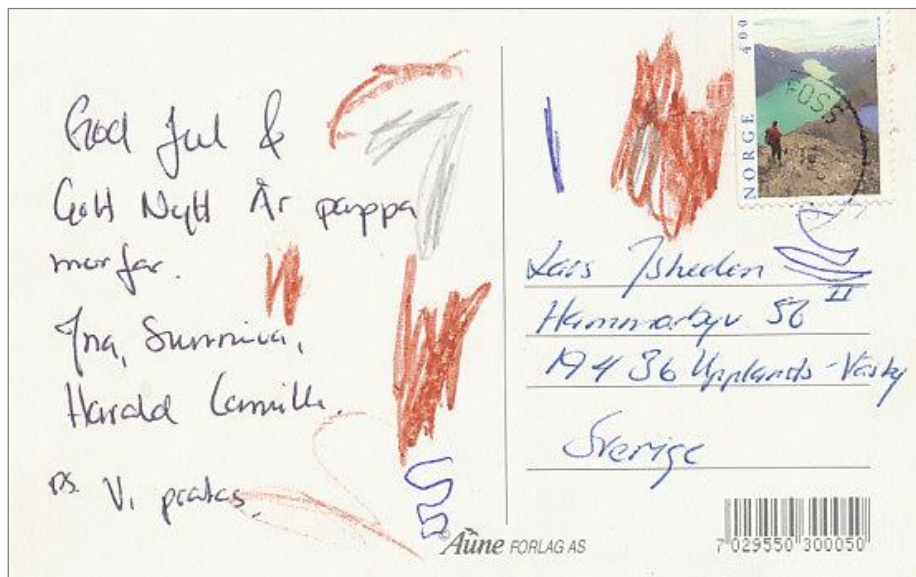 God Jul &
Gott Nytt År pappa
morfar.
Ina, Sunniva,
Harald Camilla.
ps. Vi pratas.
NORGE 400
FOSS
Lars Isheden
Hammarbyv 56 II
194 36 Upplands-Väsby
Sverige
Aune FORLAG AS
7 029550 300050